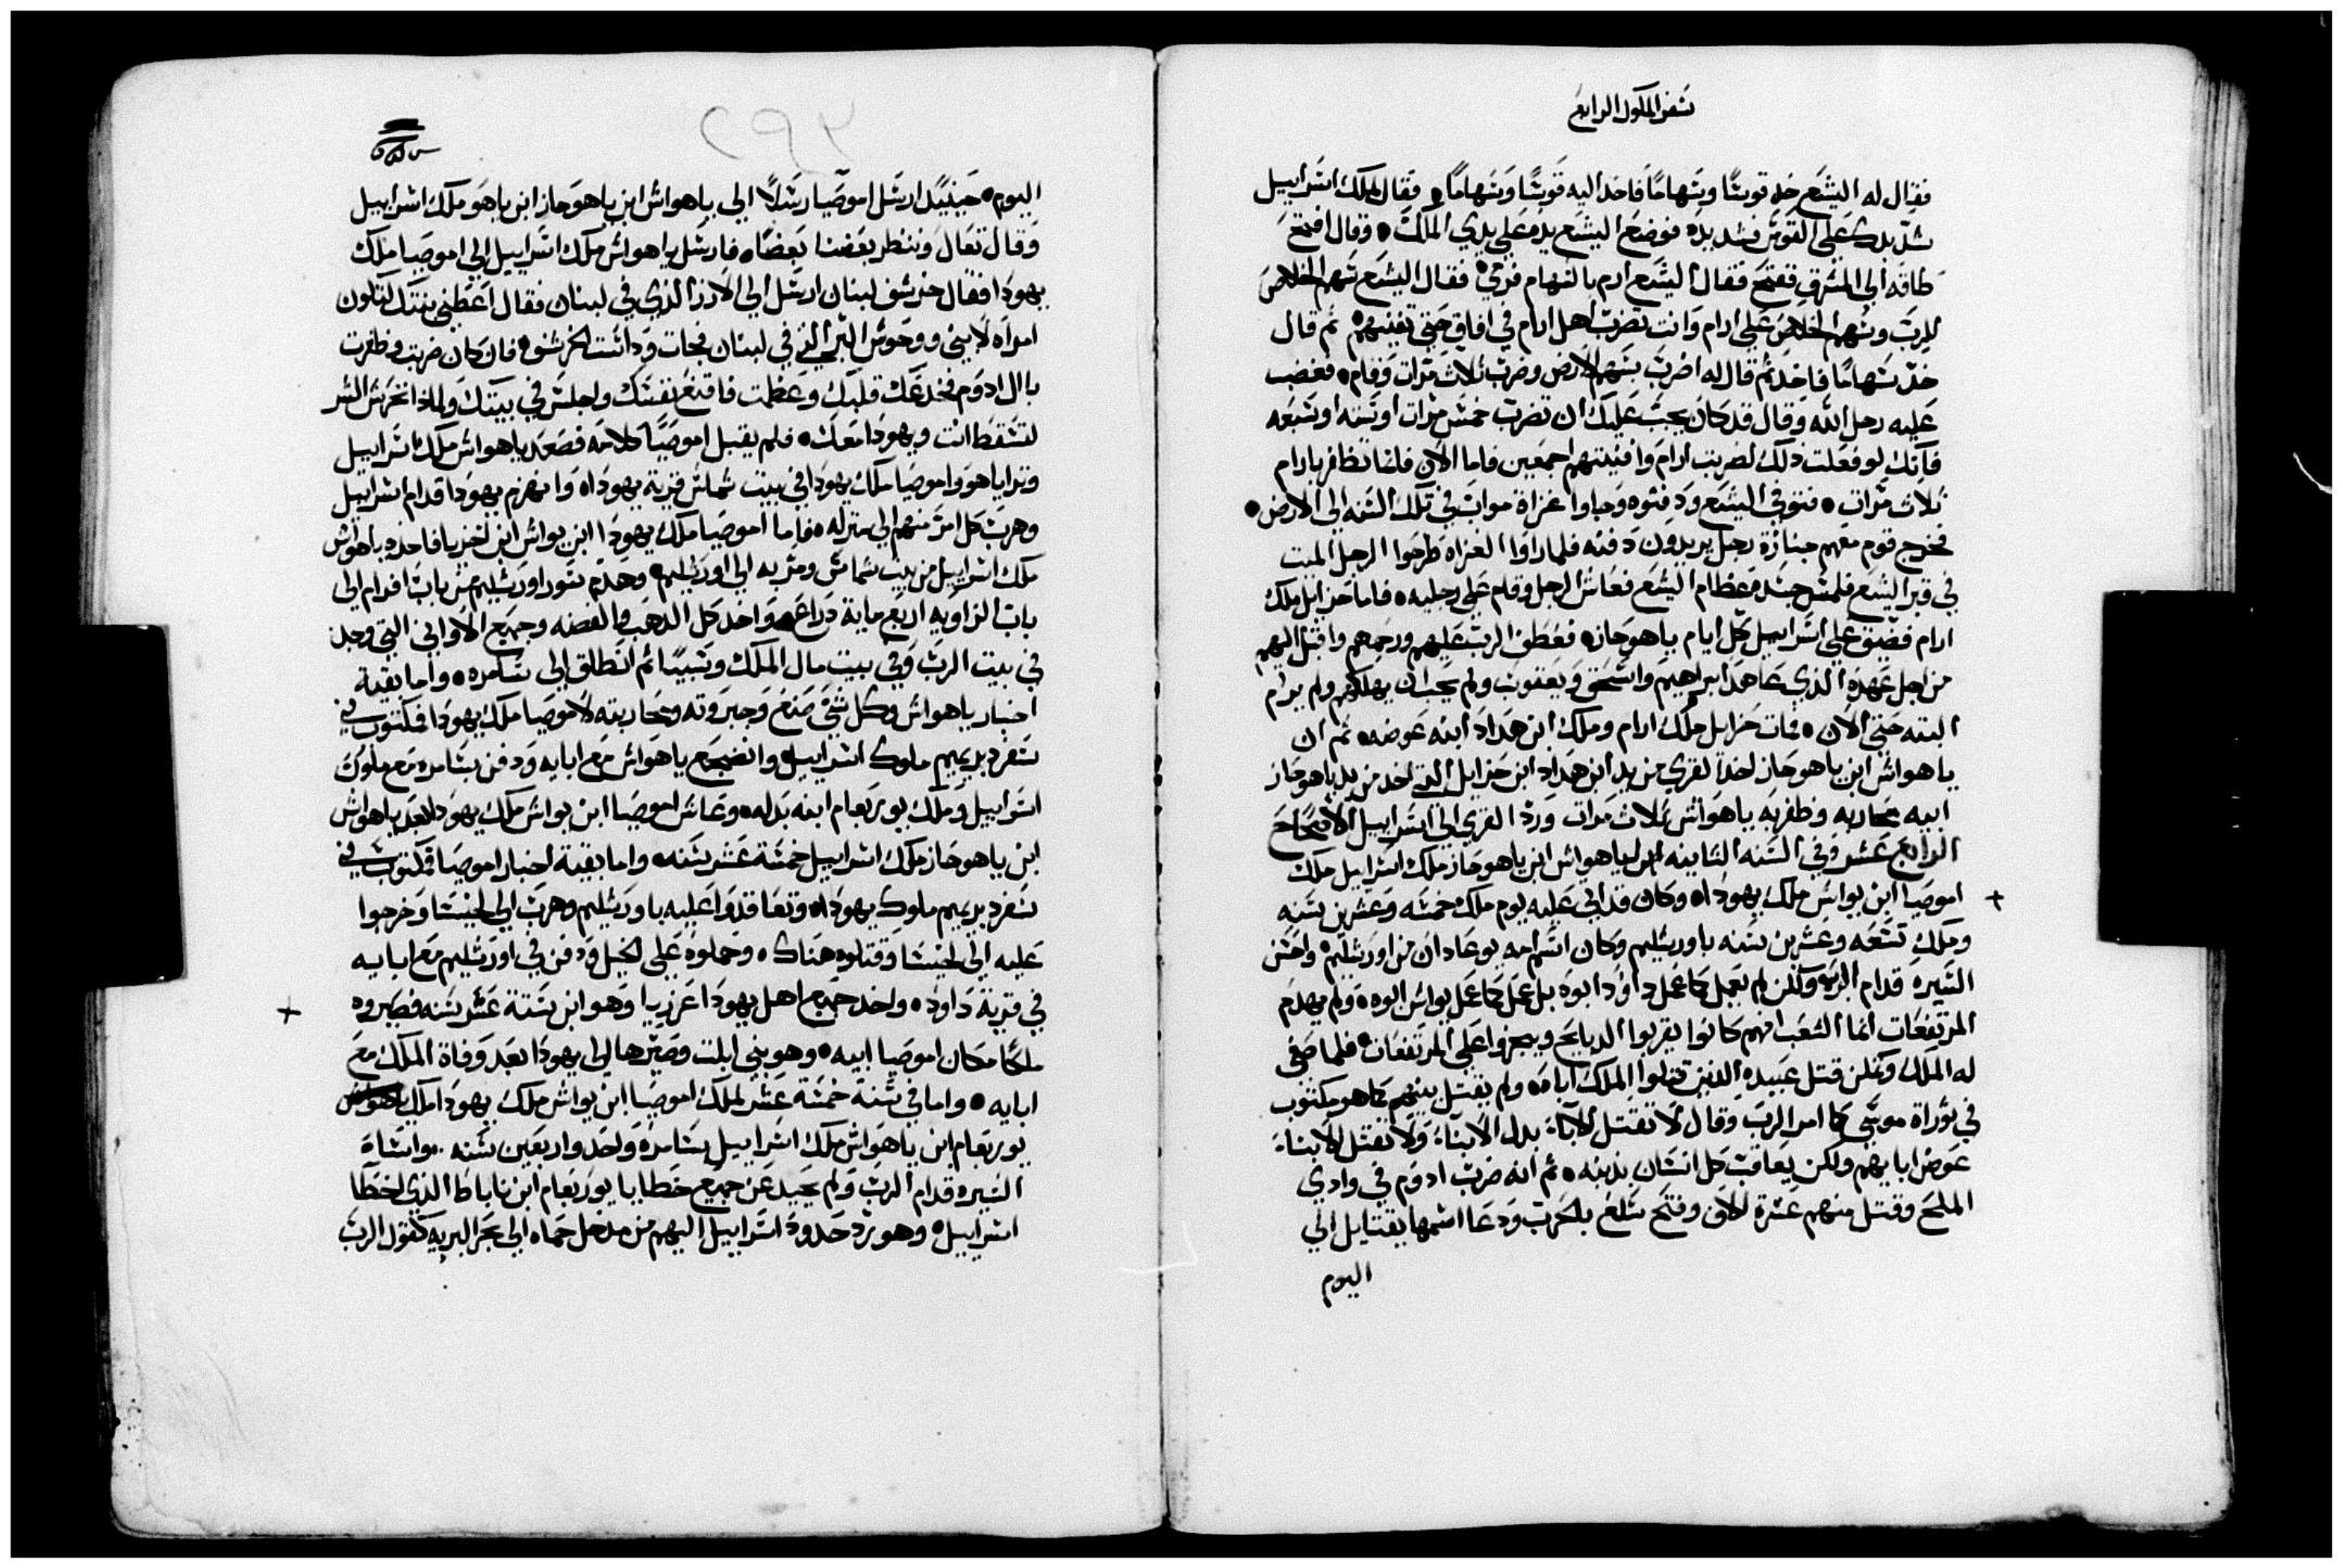 سفر الملوك الرابع
فقال له اليشع خد قوسًا وسهامًا فاخد اليه قوسًا وسهامًا وقال لملك اسراييل
شدّ يدك علي القوس فشد يده فوضع اليشع يده علي يدي الملك وقال افتح
طاقه الي المشرق ففتح فقال اليشع ارم بالسهام فرمي فقال اليشع سهم الخلاص
للرب وسهم الخلاص علي ارام وانت تضرب اهل ارام في افاق حتي تفنيهم ثم قال
خد سهامًا فاخد ثم قال له اضرب بسهم الارض وضرب ثلاث مرات وقام فغضب
عليه رجل الله وقال قد كان يجب عليك ان تضرب خمس مرات او سته او سبعه
فانك لو فعلت ذلك لضربت ارام وافنيتهم اجمعين فاما الان فانما تظافر بارام
ثلاث مرات فتوفي اليشع ودفنوه وجاوا غزاة مواب في تلك السنه الي الارض
فخرج قوم معهم جنازة رجل يريدون دفنه فلما راوا الغزاه طرحوا الرجل الميت
في قبر اليشع فلمس جسده عظام اليشع فعاش الرجل وقام علي رجليه فاما حزايل ملك
ارام فضيق علي اسراييل كل ايام ياهوحاز فعطف الرب عليهم ورحمهم واقبل اليهم
من اجل عهده الذي عاهد ابراهيم واسحق ويعقوب ولم يحب ان يهلكهم ولم يرام
البته حتي الان فمات حزايل ملك ارام وملك ابن هداد ابنه عوضه ثم ان
ياهواش ابن ياهوحاز اخد القري من يد ابن هداد ابن حزايل التي اخد من يد ياهوحاز
ابيه بمحاربه وظفر به ياهواش ثلاث مرات ورد القري الي اسراييل الاصحاح
الرابع عشر وفي السنه الثانيه ليواهواش ابن ياهوحاز ملك اسراييل ملك
+
اموصيا ابن يواش ملك يهودا وكان قد اتي عليه يوم ملك خمسه وعشرين سنه
وملك تسعه وعشرين سنه باورشليم وكان اسم امه يوعادان من اورشليم واحسن
السيره قدام الرب ولكن لم يعمل كما عمل داوود ابوه بل عمل كما عمل يواش ابوه ولم يهدم
المرتفعات انما الشعب انهم كانوا يقربوا الدبايح ويبخروا علي المرتفعات فلما صفي
له الملك وتمكن قتل عبيده الذين قتلوا الملك اباه ولم يقتل بنيهم كما هو مكتوب
في توراة موسي كما امر الرب وقال لا تقتل الاباء بدل الابناء ولا تقتل الابناء
عوض ابايهم ولكن يعاقب كل انسان بذنبه ثم انه ضرب ادوم في وادي
الملح وقتل منهم عشرة الاف وفتح سلع بالحرب ودعا اسمها يقتايل الي
اليوم
٢٩٢
اليوم حينيد ارسل اموصيا رسلًا الي ياهواش ابن ياهوحاز ابن ياهو ملك اسراييل
وقال تعال وننظر بعضنا بعضًا فارسل ياهواش ملك اسراييل الي اموصيا ملك
يهودا فقال خرشف لبنان ارسل الي الارز الذي في لبنان فقال اعطني بنتك لتكون
امراه لابني ووحوش البر التي في لبنان فجات وداست الخرشف فان كان ضربت وظفرت
بال ادوم فخدعك قلبك وعظمت فاقنع نفسك واجلس في بيتك ولمادا تحرش الشر
لتسقط انت ويهودا معك فلم يقبل اموصيا كلامه فصعد ياهواش ملك اسراييل
وترايا هو واموصيا ملك يهودا في بيت شماس قرية يهودا وانهزم يهودا قدام اسراييل
وهرب كل امرء منهم الي منزله فاما اموصيا ملك يهودا ابن يواش ابن اخزيا فاخده ياهواش
ملك اسراييل من بيت شماس ومر به الي اورشليم وهدم سور اورشليم من باب افرام الي
باب الزاويه اربع ماية دراع واخد كل الدهب والفضه وجميع الاواني التي وجد
في بيت الرب وفي بيت مال الملك وسبيًا ثم انطلق الي سامره واما بقية
اخبار ياهواش وكل شي صنع وجبروته ومحاربته لاموصيا ملك يهودا فمكتوب في
سفر دبريميم ملوك اسراييل وانضجع ياهواش مع ابايه ودفن بسامره مع ملوك
اسراييل وملك يوربعام ابنه بدله وعاش اموصيا ابن يواش ملك يهودا بعد ياهواش
ابن ياهوحاز ملك اسراييل خمسة عشر سنه واما بقية اخبار اموصيا فمكتوب في
سفر دبريميم ملوك يهودا وتعاقدوا عليه باورشليم وهرب الي لخيسا وخرجوا
عليه الي لخيسا وقتلوه هناك وحملوه علي الخيل ودفن في اورشليم مع ابايه
في قرية داود واخد جميع اهل يهودا عزريا وهو ابن ستة عشر سنه فصيروه
+
ملكًا مكان اموصيا ابيه وهو بني ايلت وصيرها الي يهودا بعد وفاة الملك مع
ابايه واما في سنة خمسة عشر لملك اموصيا ابن يواش ملك يهودا ملك
يوربعام ابن ياهواش ملك اسراييل بسامره واحد واربعين سنه واساء
السيره قدام الرب ولم يحيد عن جميع خطايا يوربعام ابن ناباط الذي اخطا
اسراييل وهو رد حدود اسراييل اليهم من مدخل حماه الي بحر البريه كقول الرب